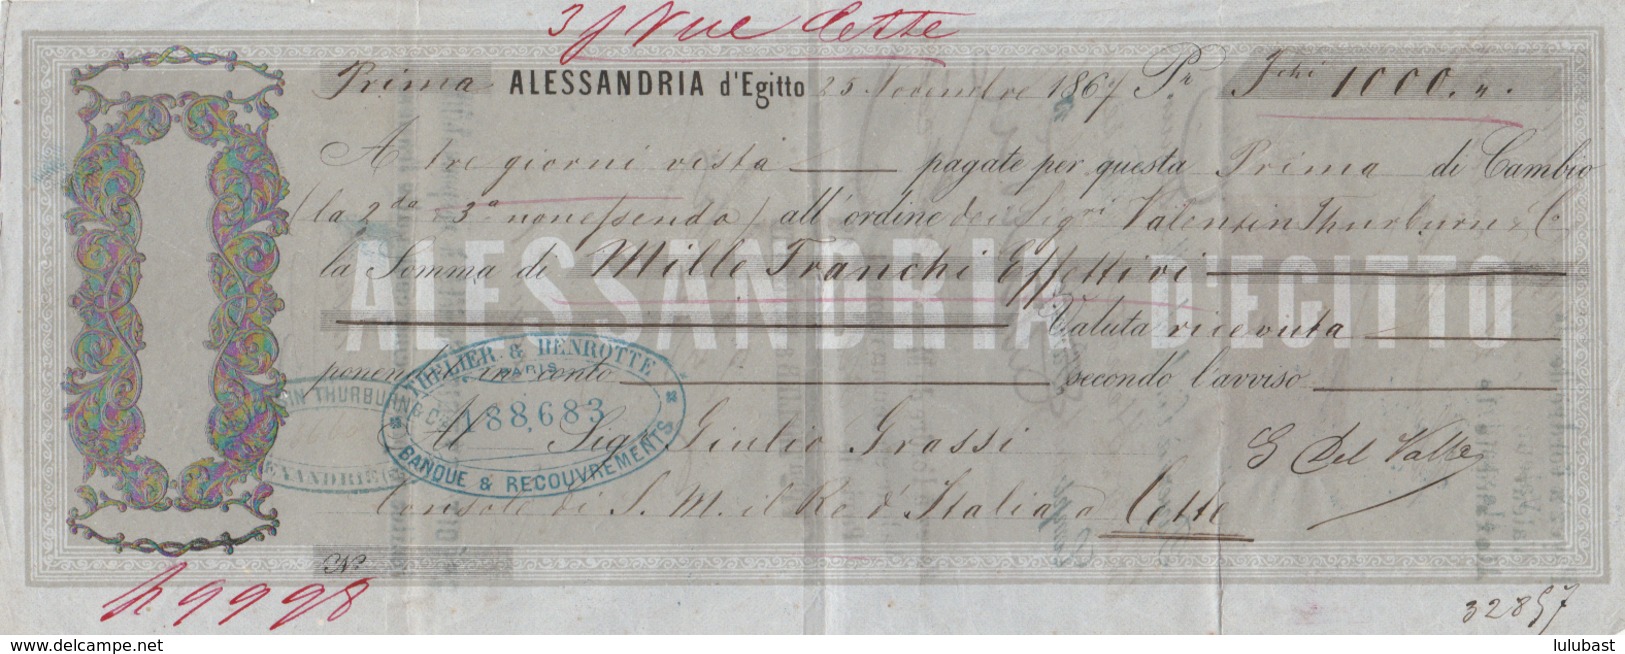 3 j Vue Cette
Prima ALESSANDRIA d'Egitto 25 Novembre 1867 Pr Fchi 1000. "
A tre giorni vista pagate per questa Prima di Cambio
(la 2da e 3a non essendo) all'ordine dei Sigri Valensin Thurburn & Co
la Somma di Mille Franchi Effettivi
ALESSANDRIA D'EGITTO
Valuta ricevuta
ponendo in conto secondo l'avviso
THELIER & HENROTTE
PARIS
188,683
BANQUE & RECOUVREMENTS
IN THURBURN & Co
EXANDRIE
Al Sigr Giulio Grassi
G Del Valle
Console di S. M. il Re d'Italia a Cette
No
h9998
32857
delcampe.net
lulubast